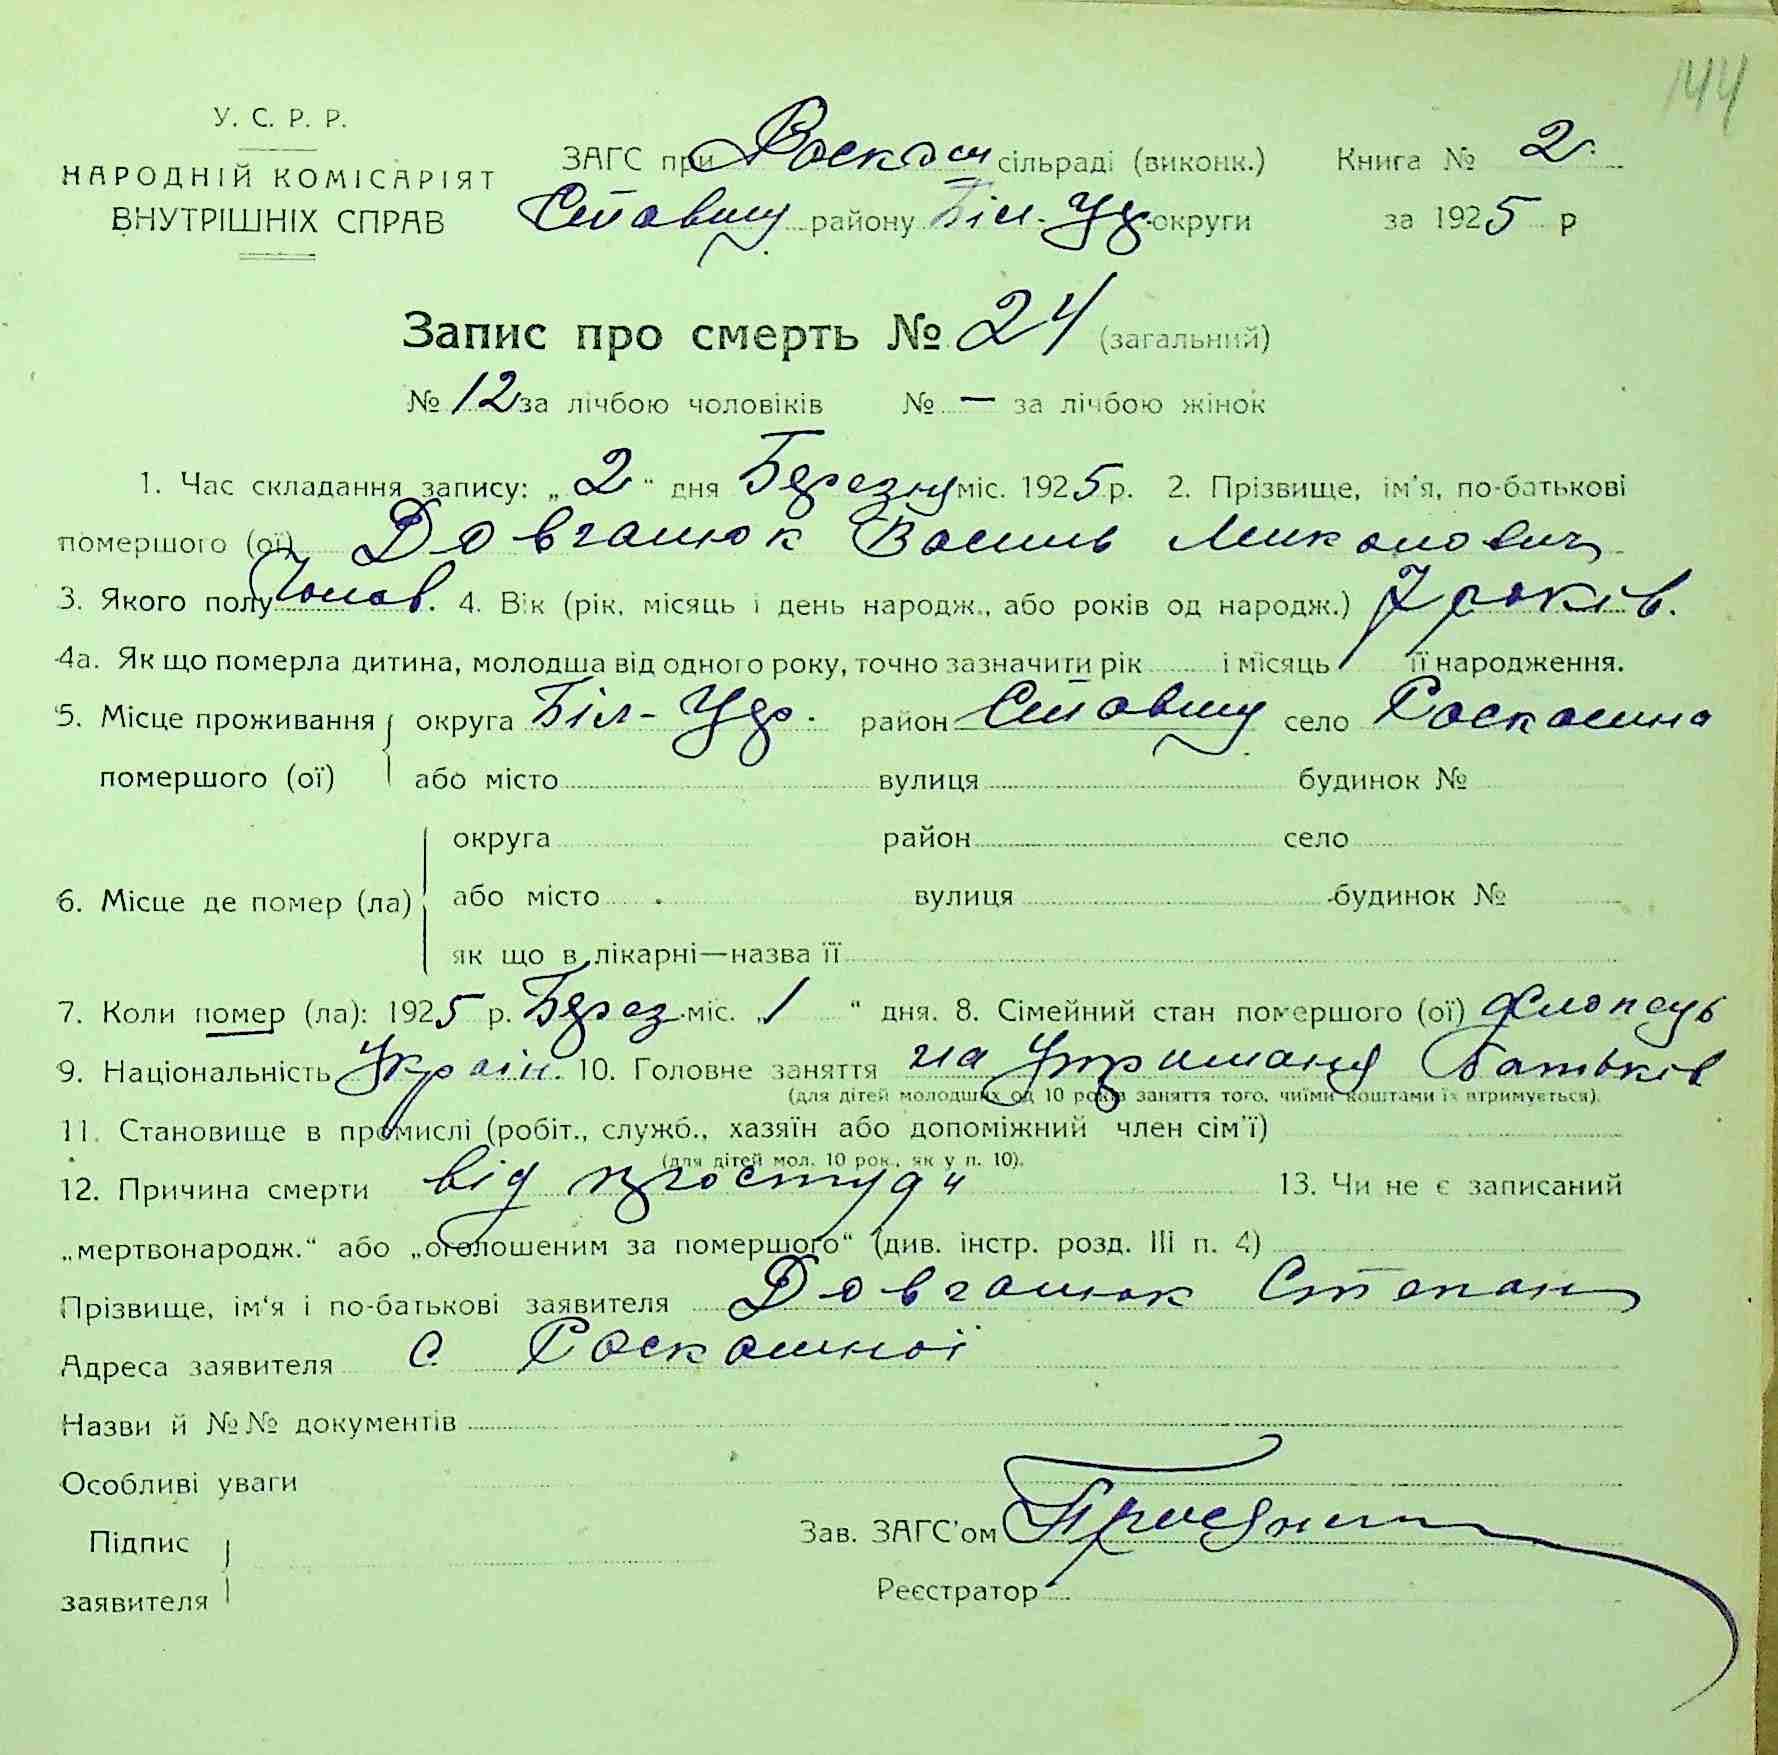 144
У. С. Р. Р.
НАРОДНІЙ КОМІСАРІЯТ
ВНУТРІШНІХ СПРАВ
ЗАГС при Роскош сільраді (виконк.) Книга № 2
Ставищ району Біл-Цер. округи за 1925 р
Запис про смерть № 24 (загальний)
№ 12 за лічбою чоловіків № — за лічбою жінок
1. Час складання запису: „2“ дня Березня міс. 1925 р. 2. Прізвище, ім'я, по-батькові
помершого (ої) Довгалюк Василь Миколович
3. Якого полу Чолов. 4. Вік (рік, місяць і день народж., або років од народж.) 7 років.
4а. Як що померла дитина, молодша від одного року, точно зазначити рік і місяць її народження.
5. Місце проживання округа Біл-Цер. район Ставищ село Роскошна
помершого (ої) або місто вулиця будинок №
округа район село
6. Місце де помер (ла) або місто вулиця будинок №
як що в лікарні—назва її
7. Коли помер (ла): 1925 р. Берез. міс. „1“ дня. 8. Сімейний стан помершого (ої) Хлопець
9. Національність Украін. 10. Головне заняття на утриманя батьків
(для дітей молодших од 10 років заняття того, чиїми коштами їх втримується).
11. Становище в промислі (робіт., служб., хазяїн або допоміжний член сім'ї)
(для дітей мол. 10 рок., як у п. 10).
12. Причина смерти від простуди 13. Чи не є записаний
„мертвонародж.“ або „оголошеним за помершого“ (див. інстр. розд. III п. 4)
Прізвище, ім'я і по-батькові заявителя Довгалюк Степан
Адреса заявителя с. Роскошної
Назви й №№ документів
Особливі уваги
Підпис
заявителя
Зав. ЗАГС'ом
Реєстратор